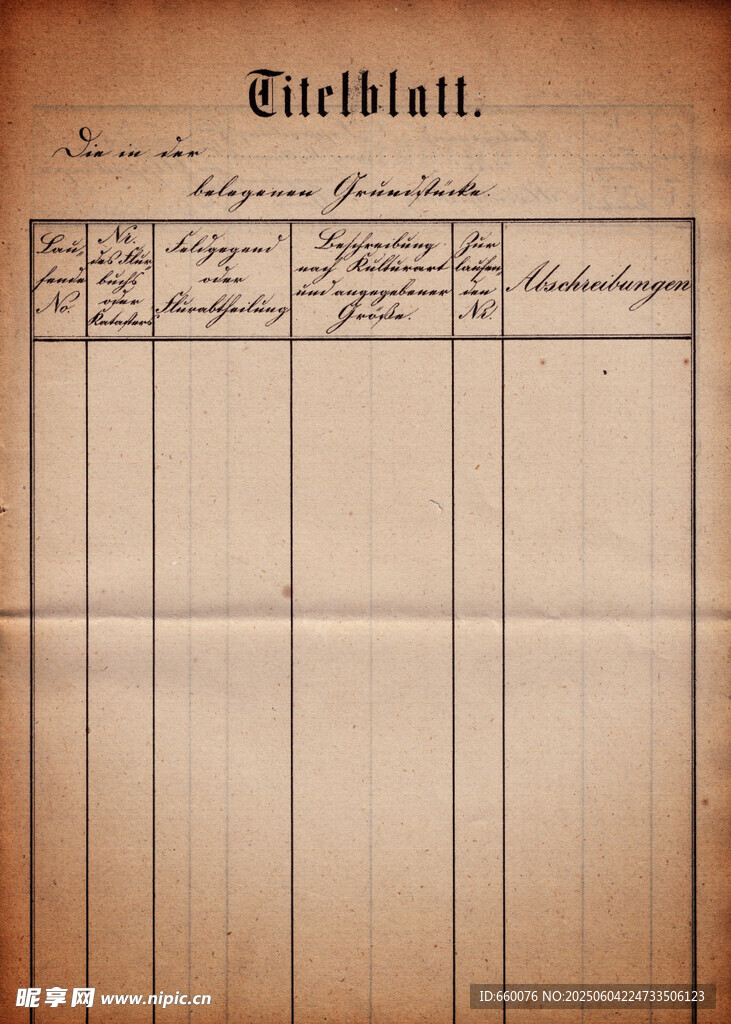 Titelblatt.
Die in der
belegenen Grundstücke.
Lau-
fende
No.
Nr.
des Flur-
buchs
oder
Katasters
Feldgegend
oder
Flurabtheilung
Beschreibung
nach Kulturart
und angegebener
Größe.
Zur
laufen-
den
Nr.
Abschreibungen
昵享网 www.nipic.cn
ID:660076 NO:20250604224733506123